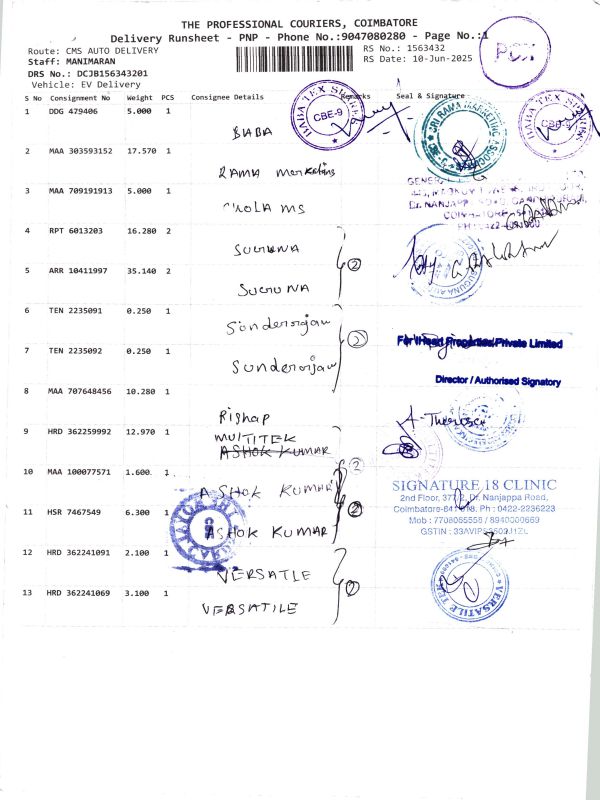 THE PROFESSIONAL COURIERS, COIMBATORE
Delivery Runsheet - PNP - Phone No.:9047080280 - Page No.:1
Route: CMS AUTO DELIVERY
RS No.: 1563432
Staff: MANIMARAN
RS Date: 10-Jun-2025
DRS No.: DCJB156343201
Vehicle: EV Delivery
PCX
S No Consignment No Weight PCS Consignee Details Remarks Seal & Signature
1 DDG 479406 5.000 1 BABA
BABA TEX
CBE-9
SRI RAMA MARKETING ASSOCIATES
BABA TEX
CBE-9
2 MAA 303593152 17.570 1 RAMA Marketing
3 MAA 709191913 5.000 1 CHOLA MS
Dr. NANJAPPA
4 RPT 6013203 16.280 2 SUGUNA
2
5 ARR 10411997 35.140 2 SUGUNA
6 TEN 2235091 0.250 1
2
For Head Properties Private Limited
7 TEN 2235092 0.250 1
Director / Authorised Signatory
8 MAA 707648456 10.280 1 Rishap
9 HRD 362259992 12.970 1 MULTITEK
ASHOK KUMAR
10 MAA 100077571 1.600 1 ASHOK KUMAR
2
SIGNATURE 18 CLINIC
2nd Floor, 377/2, Dr. Nanjappa Road,
Coimbatore-641 018. Ph : 0422-2236223
Mob : 7708065558 / 8940000669
11 HSR 7467549 6.300 1 ASHOK KUMAR
2
12 HRD 362241091 2.100 1 VERSATLE
2
13 HRD 362241069 3.100 1 VERSATILE
VERSATILE